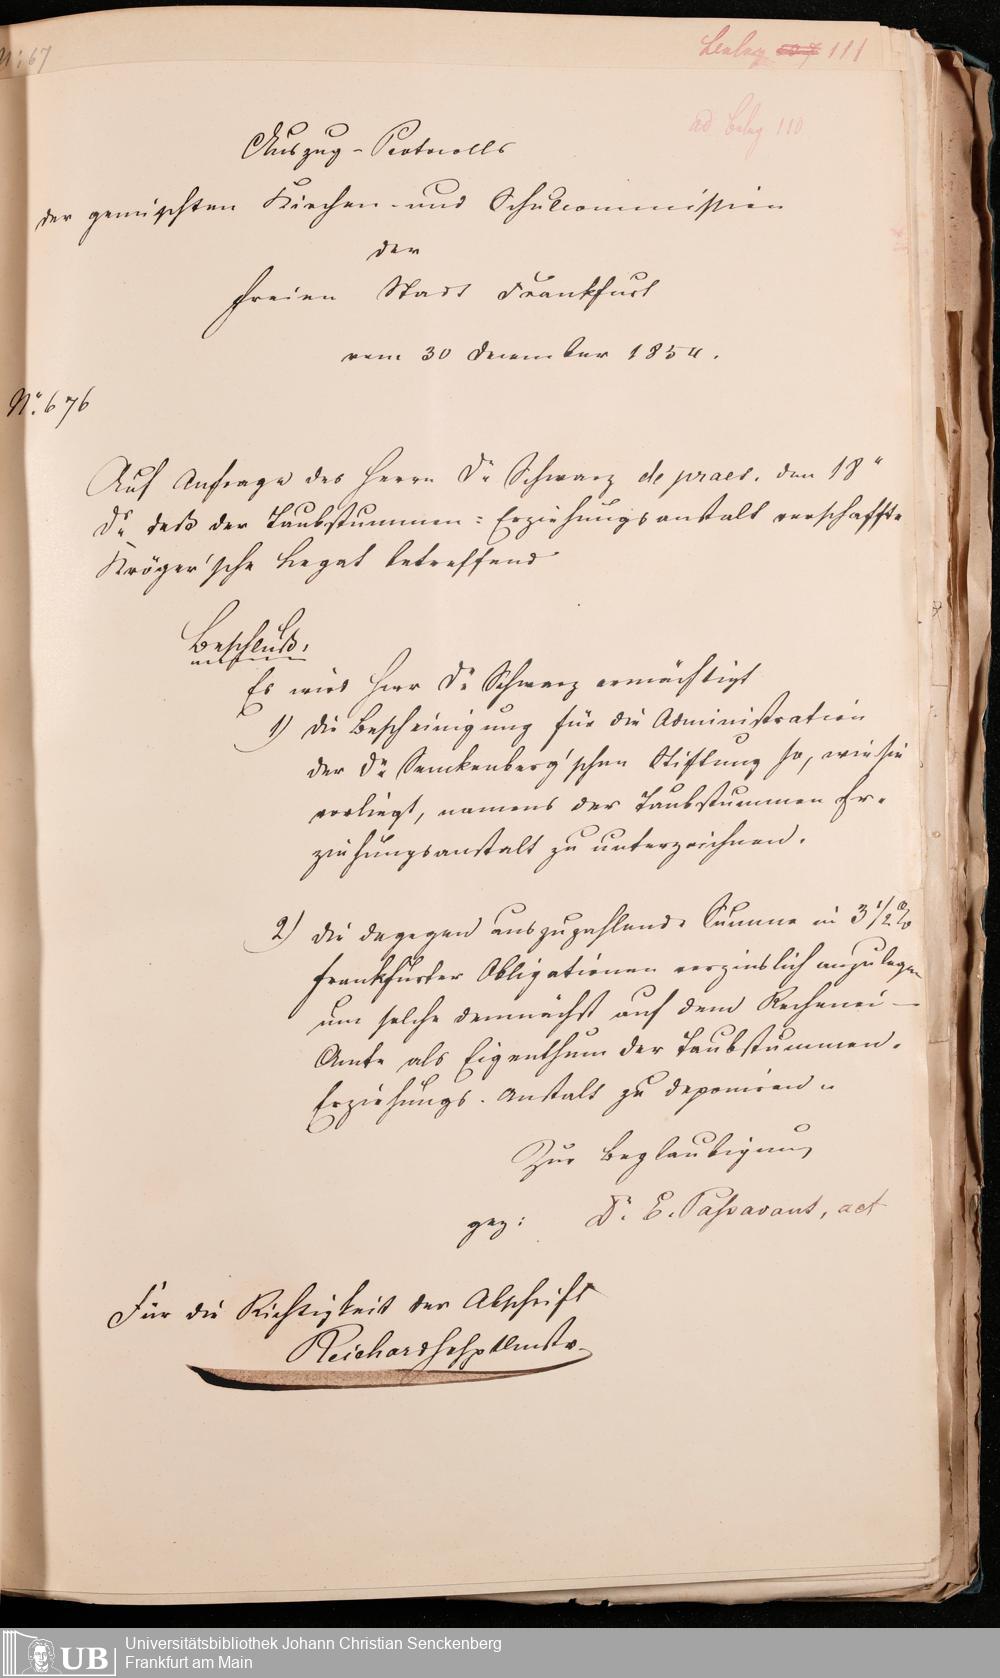 N: 67
Beleg 107 111
ad Beleg 110
Auszug-Protocolls
der gemischten Kirchen- und Schulcommission
der
freien Stadt Frankfurt
vom 30 December 1854.
No. 676
Auf Anfrage des Herrn Dr Schwarz de praes. den 18"
Ds daß der Taubstummen-Erziehungsanstalt verschaffte
Kröger'sche Legat betreffend
Beschluß:
Es wird Herr Dr Schwarz ermächtigt
1) die Bescheinigung für die Administration
der Dr Senckenberg'schen Stiftung so, wie sie
vorliegt, namens der Taubstummen Er-
ziehungsanstalt zu unterzeichnen.
2) die dagegen auszuzahlende Summe in 3 1/2 %
Frankfurter Obligationen verzinslich anzulegen
um solche demnächst auf dem Rechenei-
Amte als Eigenthum der Taubstummen-
Erziehungs-Anstalt zu deponiren.
Zur Beglaubigung
gez: Dr. E. Passavant, act
Für die Richtigkeit der Abschrift
UB
Universitätsbibliothek Johann Christian Senckenberg
Frankfurt am Main